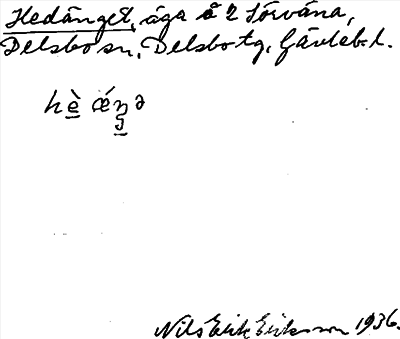 Hedänget, äga å 2 Sörvåna,
Delsbo sn, Delsbo tg, Gävleb. l.
hè̱ ǽŋ̱ə
Nils Erik Eriksson 1936.